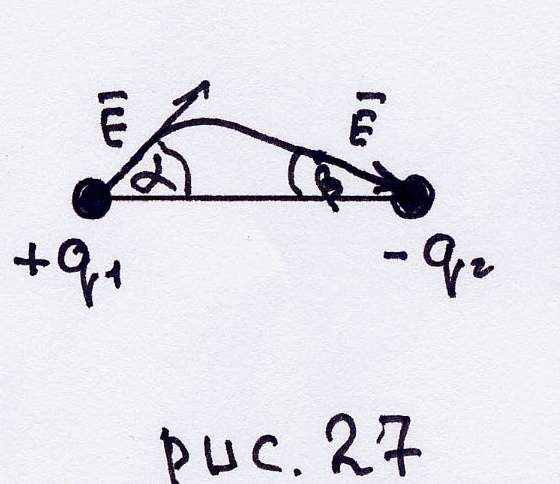 E̅ E̅
α β
+q₁ -q₂
рис. 27